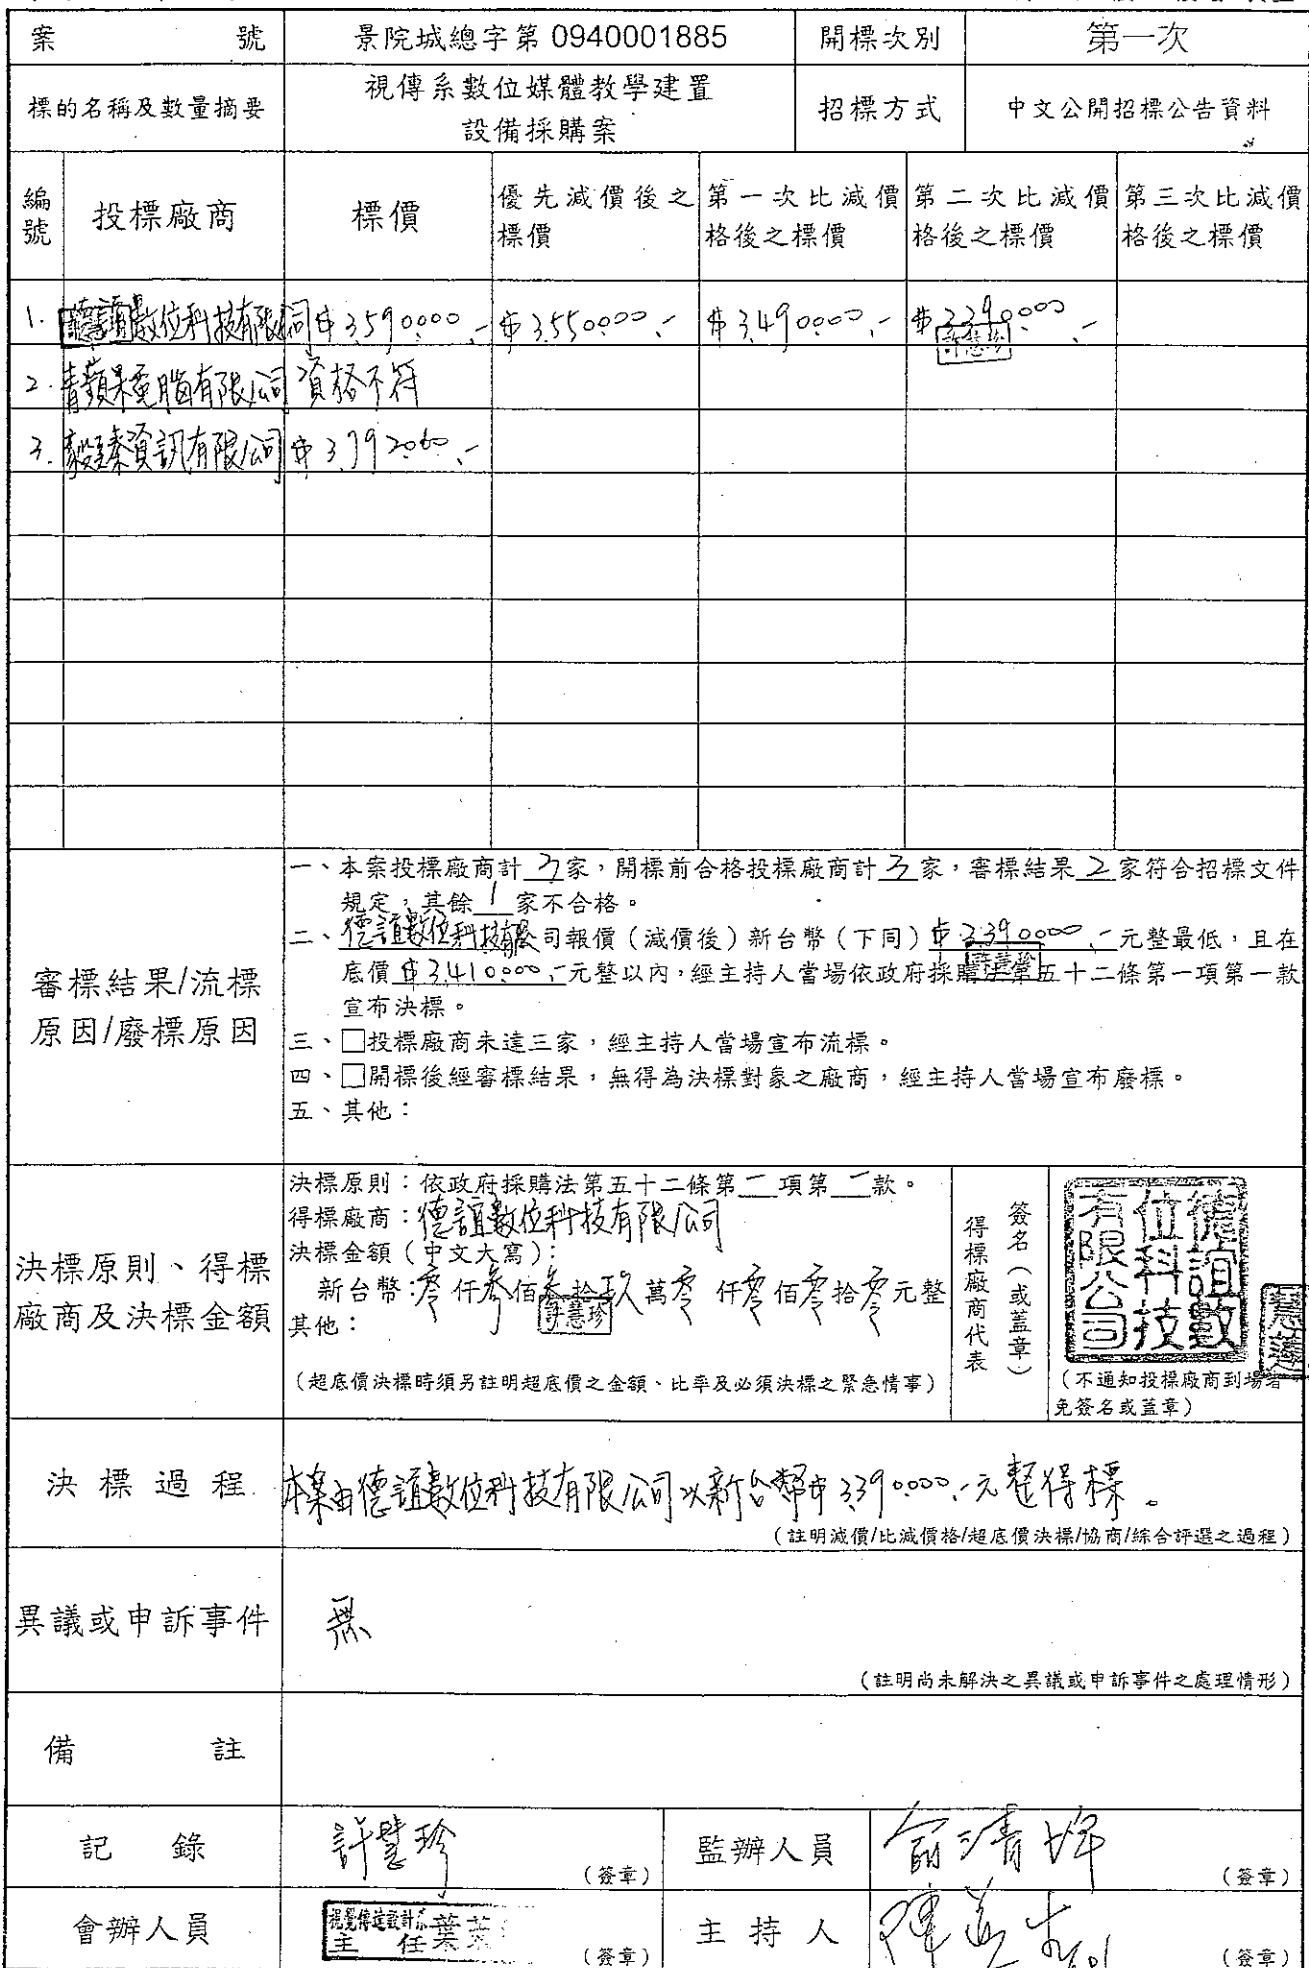 案 號 景院城總字第 0940001885 開標次別 第一次
標的名稱及數量摘要 視傳系數位媒體教學建置
設備採購案 招標方式 中文公開招標公告資料
編號 投標廠商 標價 優先減價後之標價 第一次比減價格後之標價 第二次比減價格後之標價 第三次比減價格後之標價
1. 德誼數位科技有限公司 $3,590,000.- $3,550,000.- $3,490,000.- $3,390,000.-
許慧珍
2. 青蘋果電腦有限公司 資格不符
3. 毅臻資訊有限公司
審標結果/流標
原因/廢標原因
一、本案投標廠商計 3 家,開標前合格投標廠商計 3 家,審標結果 2 家符合招標文件
規定,其餘 1 家不合格。
二、德誼數位科技有限公司報價(減價後)新台幣(下同)$3,390,000.- 元整最低,且在
底價 $3,410,000.- 元整以內,經主持人當場依政府採購法第五十二條第一項第一款
許慧珍
宣布決標。
三、□投標廠商未達三家,經主持人當場宣布流標。
四、□開標後經審標結果,無得為決標對象之廠商,經主持人當場宣布廢標。
五、其他:
決標原則、得標
廠商及決標金額
決標原則:依政府採購法第五十二條第一項第一款。
得標廠商:德誼數位科技有限公司
決標金額(中文大寫):
新台幣:零仟參佰參拾玖萬零仟零佰零拾零元整
許慧珍
其他:
(超底價決標時須另註明超底價之金額、比率及必須決標之緊急情事)
得標廠商代表
簽名(或蓋章)
德誼數位科技有限公司
(不通知投標廠商到場者
免簽名或蓋章)
決標過程 本案由德誼數位科技有限公司以新台幣$3,390,000.-元整得標。
(註明減價/比減價格/超底價決標/協商/綜合評選之過程)
異議或申訴事件 無
(註明尚未解決之異議或申訴事件之處理情形)
備 註
記 錄 許慧珍 (簽章) 監辦人員 (簽章)
會辦人員 視覺傳達設計系 主任 葉 (簽章) 主持人 (簽章)